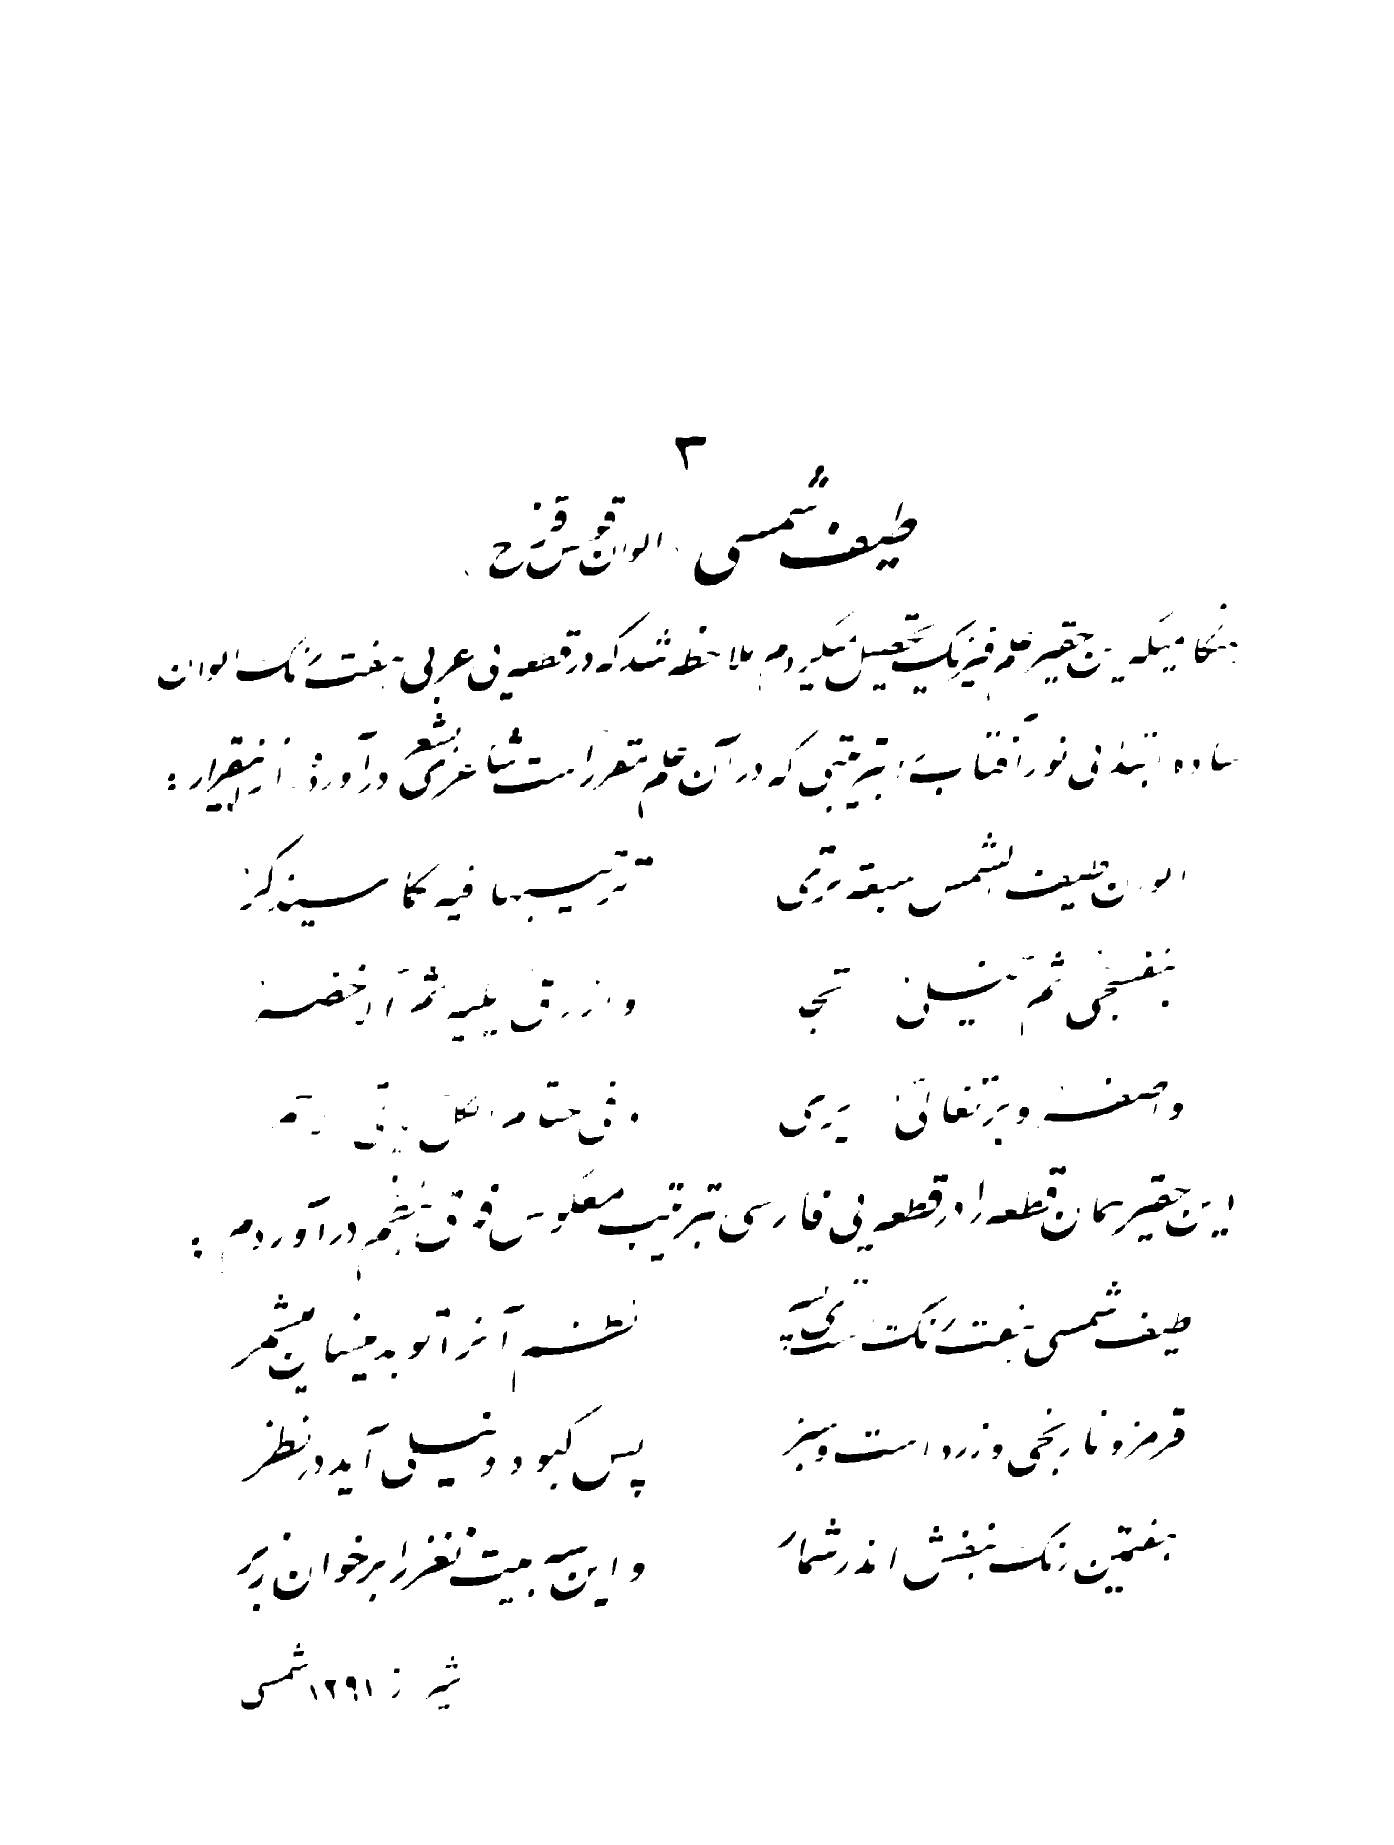 ۳
طیف شمسی (الوان قوس قزح)
هنگامیکه این حقیر علم فیزیک تحصیل میکردم ملاحظه شد که در قطعه ئی عربی هفت رنگ الوان
ساده ابتدائی نور آفتاب به ترتیبی که در آن علم مقرر است شاعری بشعر در آورده از اینقرار :
الوان طیف الشمس سبعة تری ترتیبها فیه کما سیذکر
بنفسجی ثم نیلی تجد وازرق یلیه ثم الاخضر
واصفر و برتقانی یری وفی ختام الکل یأتی
این حقیر همان قطعه را در قطعه یی فارسی بترتیب معکوس فوق بنظم در آوردم :
طیف شمسی هفت رنگ است ای نظم آنرا تو بدینسان میشمر
قرمز و نارنجی و زرد است و سبز پس کبود و نیلی آید در نظر
هفتمین رنگ بنفش اندر شمار و این سه بیت نغز را بر خوان زبر
شیراز ۱۲۹۱ شمسی